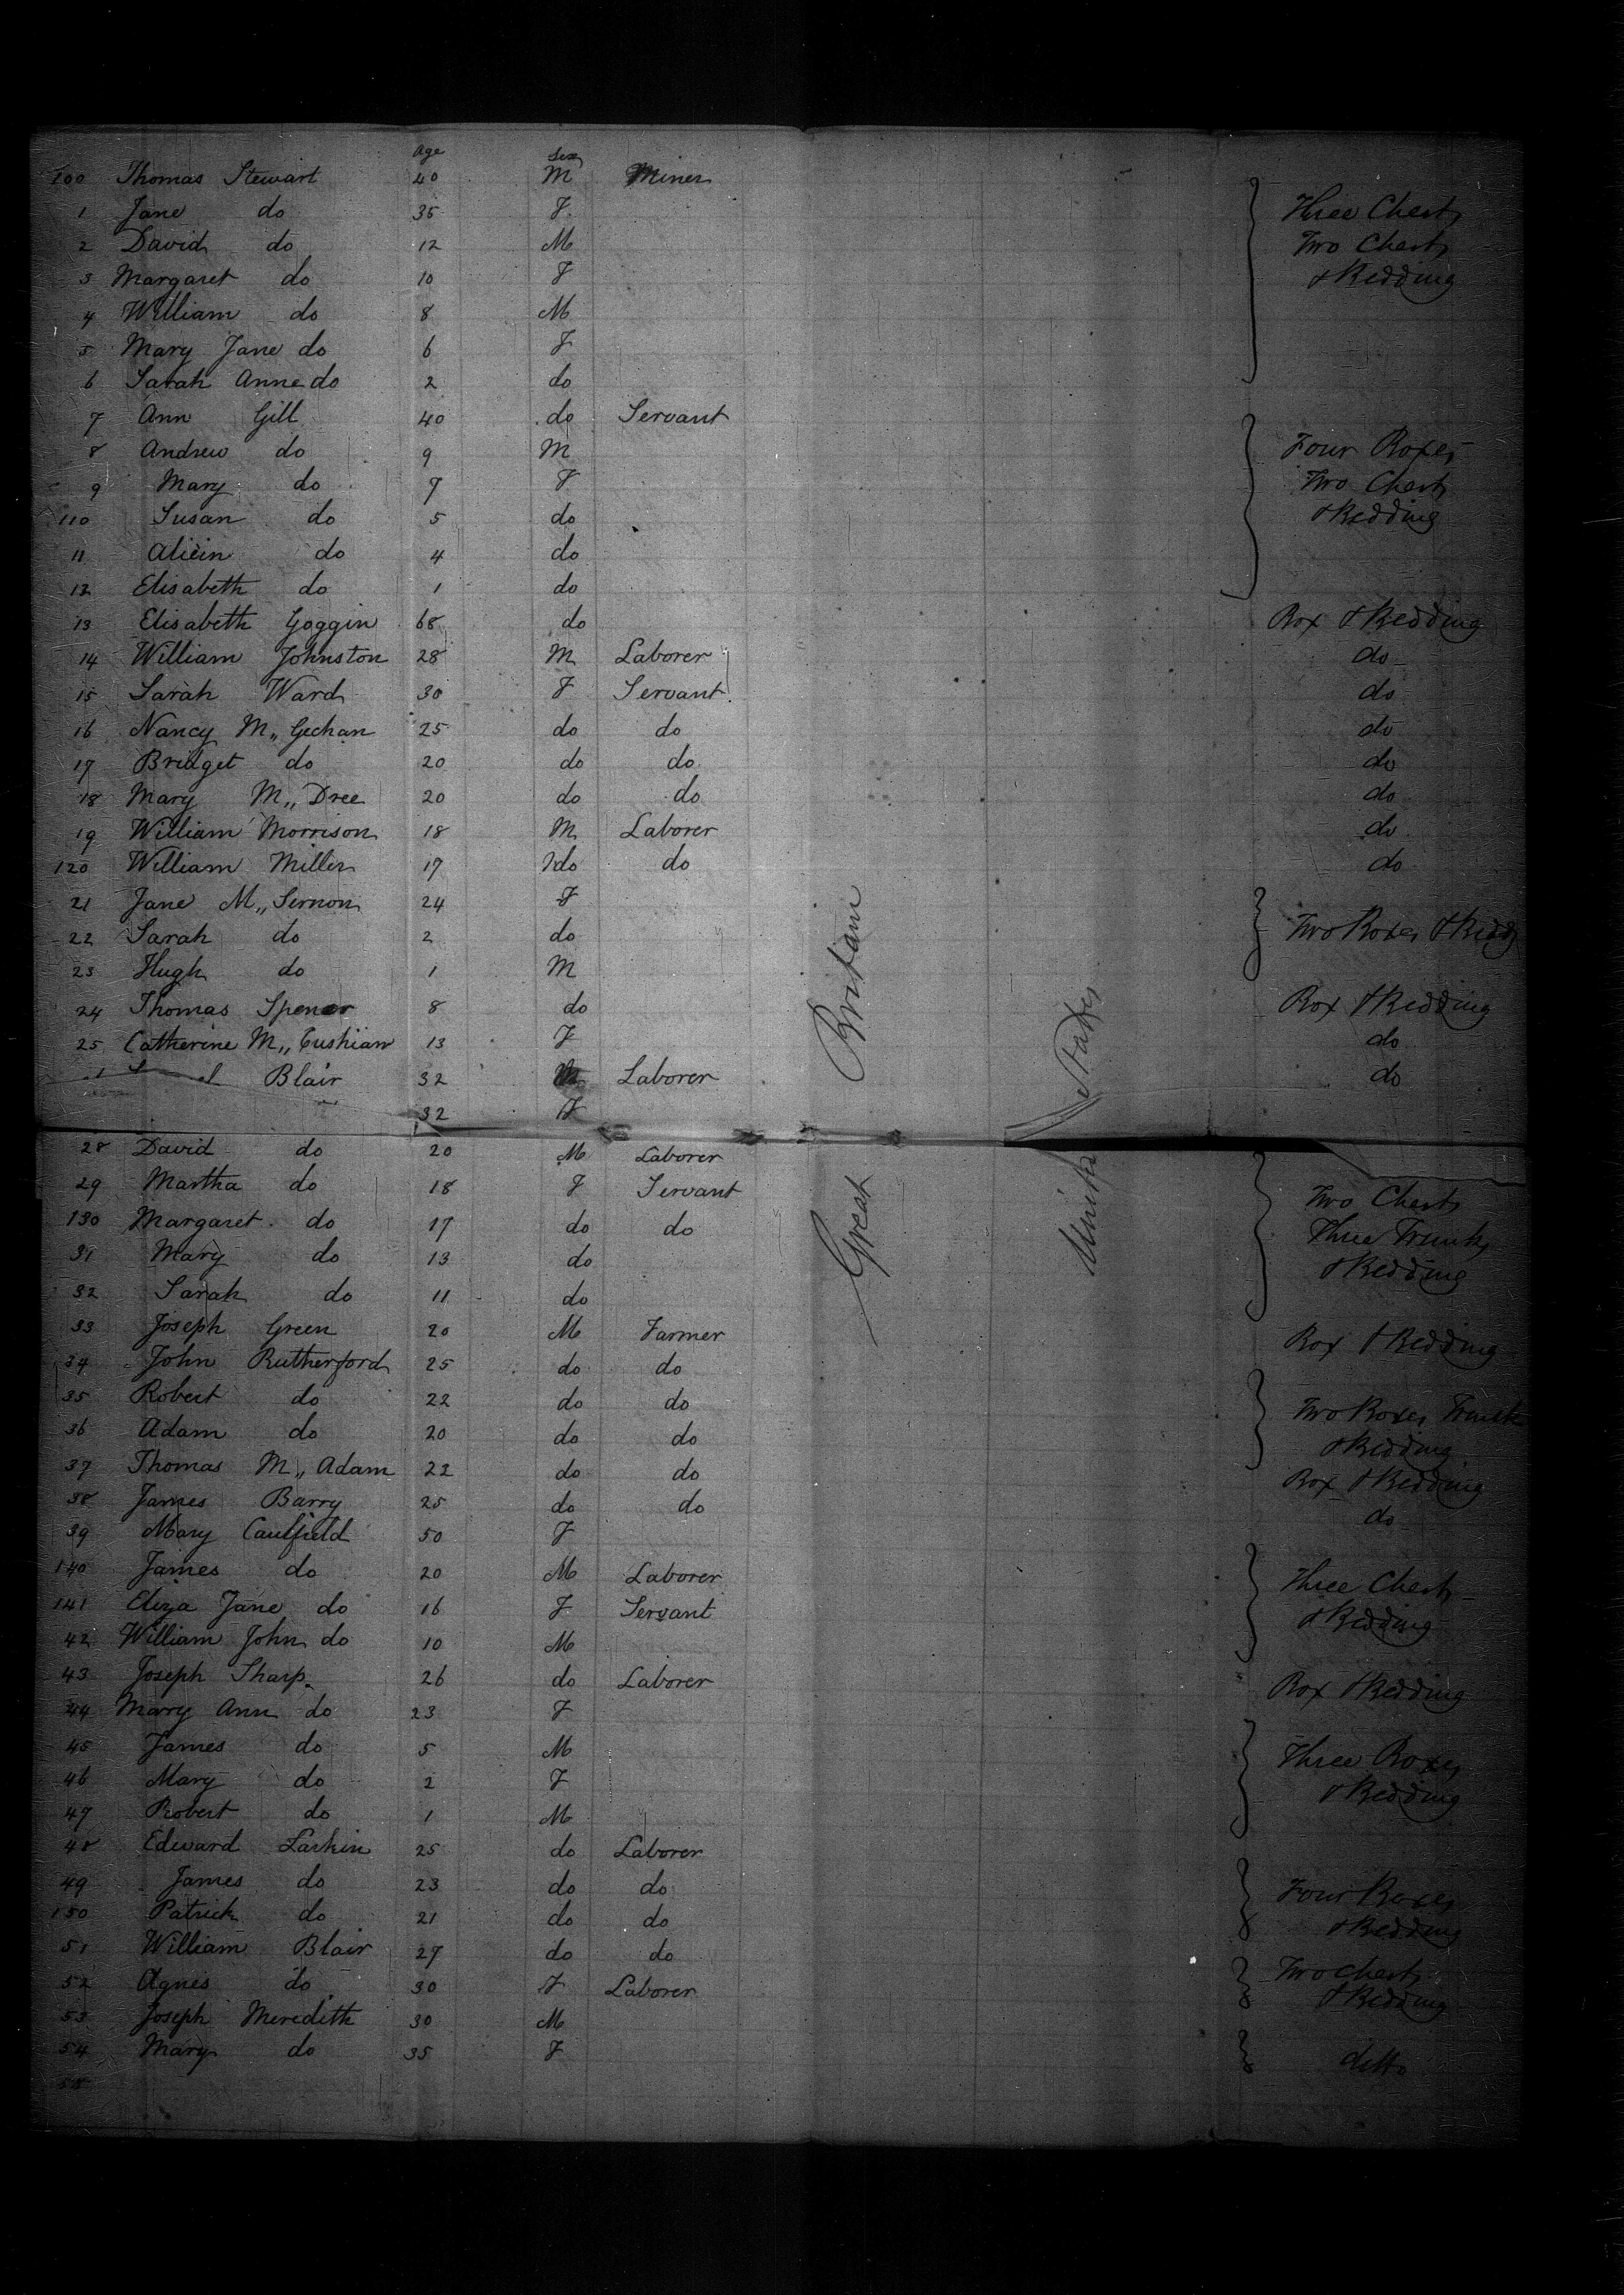 Age Sex
100 Thomas Stewart 40 M Miner
1 Jane do 35 F Three Chests
2 David do 12 M Two Chests
3 Margaret do 10 F & Bedding
4 William do 8 M
5 Mary Jane do 6 F
6 Sarah Anne do 2 do
7 Ann Gill 40 do Servant
8 Andrew do 9 M Four Boxes
9 Mary do 7 F Two Chests
110 Susan do 5 do & Bedding
11 Aliein do 4 do
12 Elisabeth do 1 do
13 Elisabeth Goggin 68 do Box & Bedding
14 William Johnston 28 M Laborer do
15 Sarah Ward 30 F Servant do
16 Nancy M,, Gechan 25 do do do
17 Bridget do 20 do do do
18 Mary M,, Dree 20 do do do
19 William Morrison 18 M Laborer do
120 William Miller 17 do do do
21 Jane M,, Sernon 24 F
22 Sarah do 2 do Two Boxes & Bedd
23 Hugh do 1 M
24 Thomas Spencer 8 do Box & Bedding
25 Catherine M,, 13 F do
Blair 32 M Laborer do
32 F
28 David do 20 M Laborer
29 Martha do 18 F Servant Two Chests
130 Margaret do 17 do do Three Trunks
31 Mary do 13 do & Bedding
32 Sarah do 11 do
33 Joseph Green 20 M Farmer Box & Bedding
34 John Rutherford 25 do do
35 Robert do 22 do do Two Boxes Trunk
36 Adam do 20 do do & Bedding
37 Thomas M,, Adam 22 do do Box & Bedding
38 James Barry 25 do do do
39 Mary Caulfield 50 F
140 James do 20 M Laborer Three Chests
141 Eliza Jane do 16 F Servant & Bedding
42 William John do 10 M
43 Joseph Sharp 26 do Laborer Box & Bedding
44 Mary Ann do 23 F
45 James do 5 M Three Boxes
46 Mary do 2 F & Bedding
47 Robert do 1 M
48 Edward Larkin 25 do Laborer
49 James do 23 do do Four Boxes
150 Patrick do 21 do do & Bedding
51 William Blair 27 do do Two Chests
52 Agnes do 30 F Laborer & Bedding
53 Joseph Meredith 30 M
54 Mary do 35 F ditto
55
Great Britain
United States